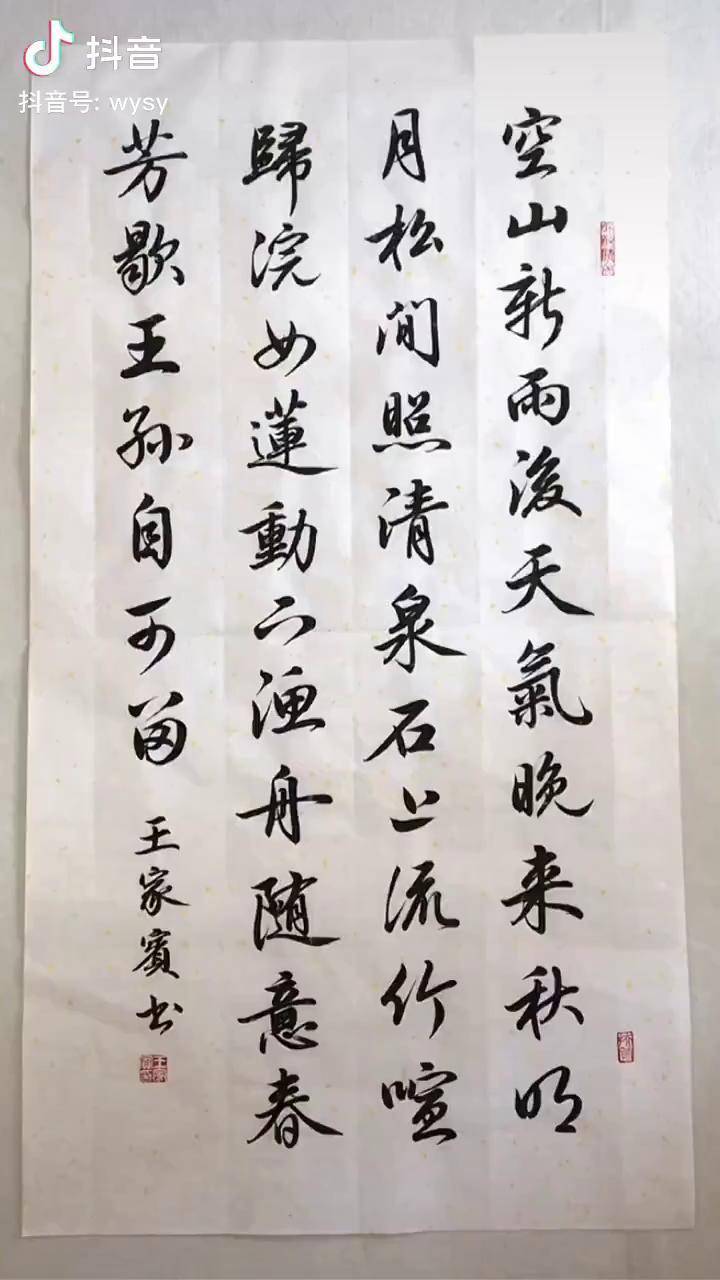 抖音
抖音号: wysy
空山新雨後天氣晚来秋明
月松间照清泉石上流竹喧
歸浣女蓮動下渔舟随意春
芳歇王孙自可留
王家賓书